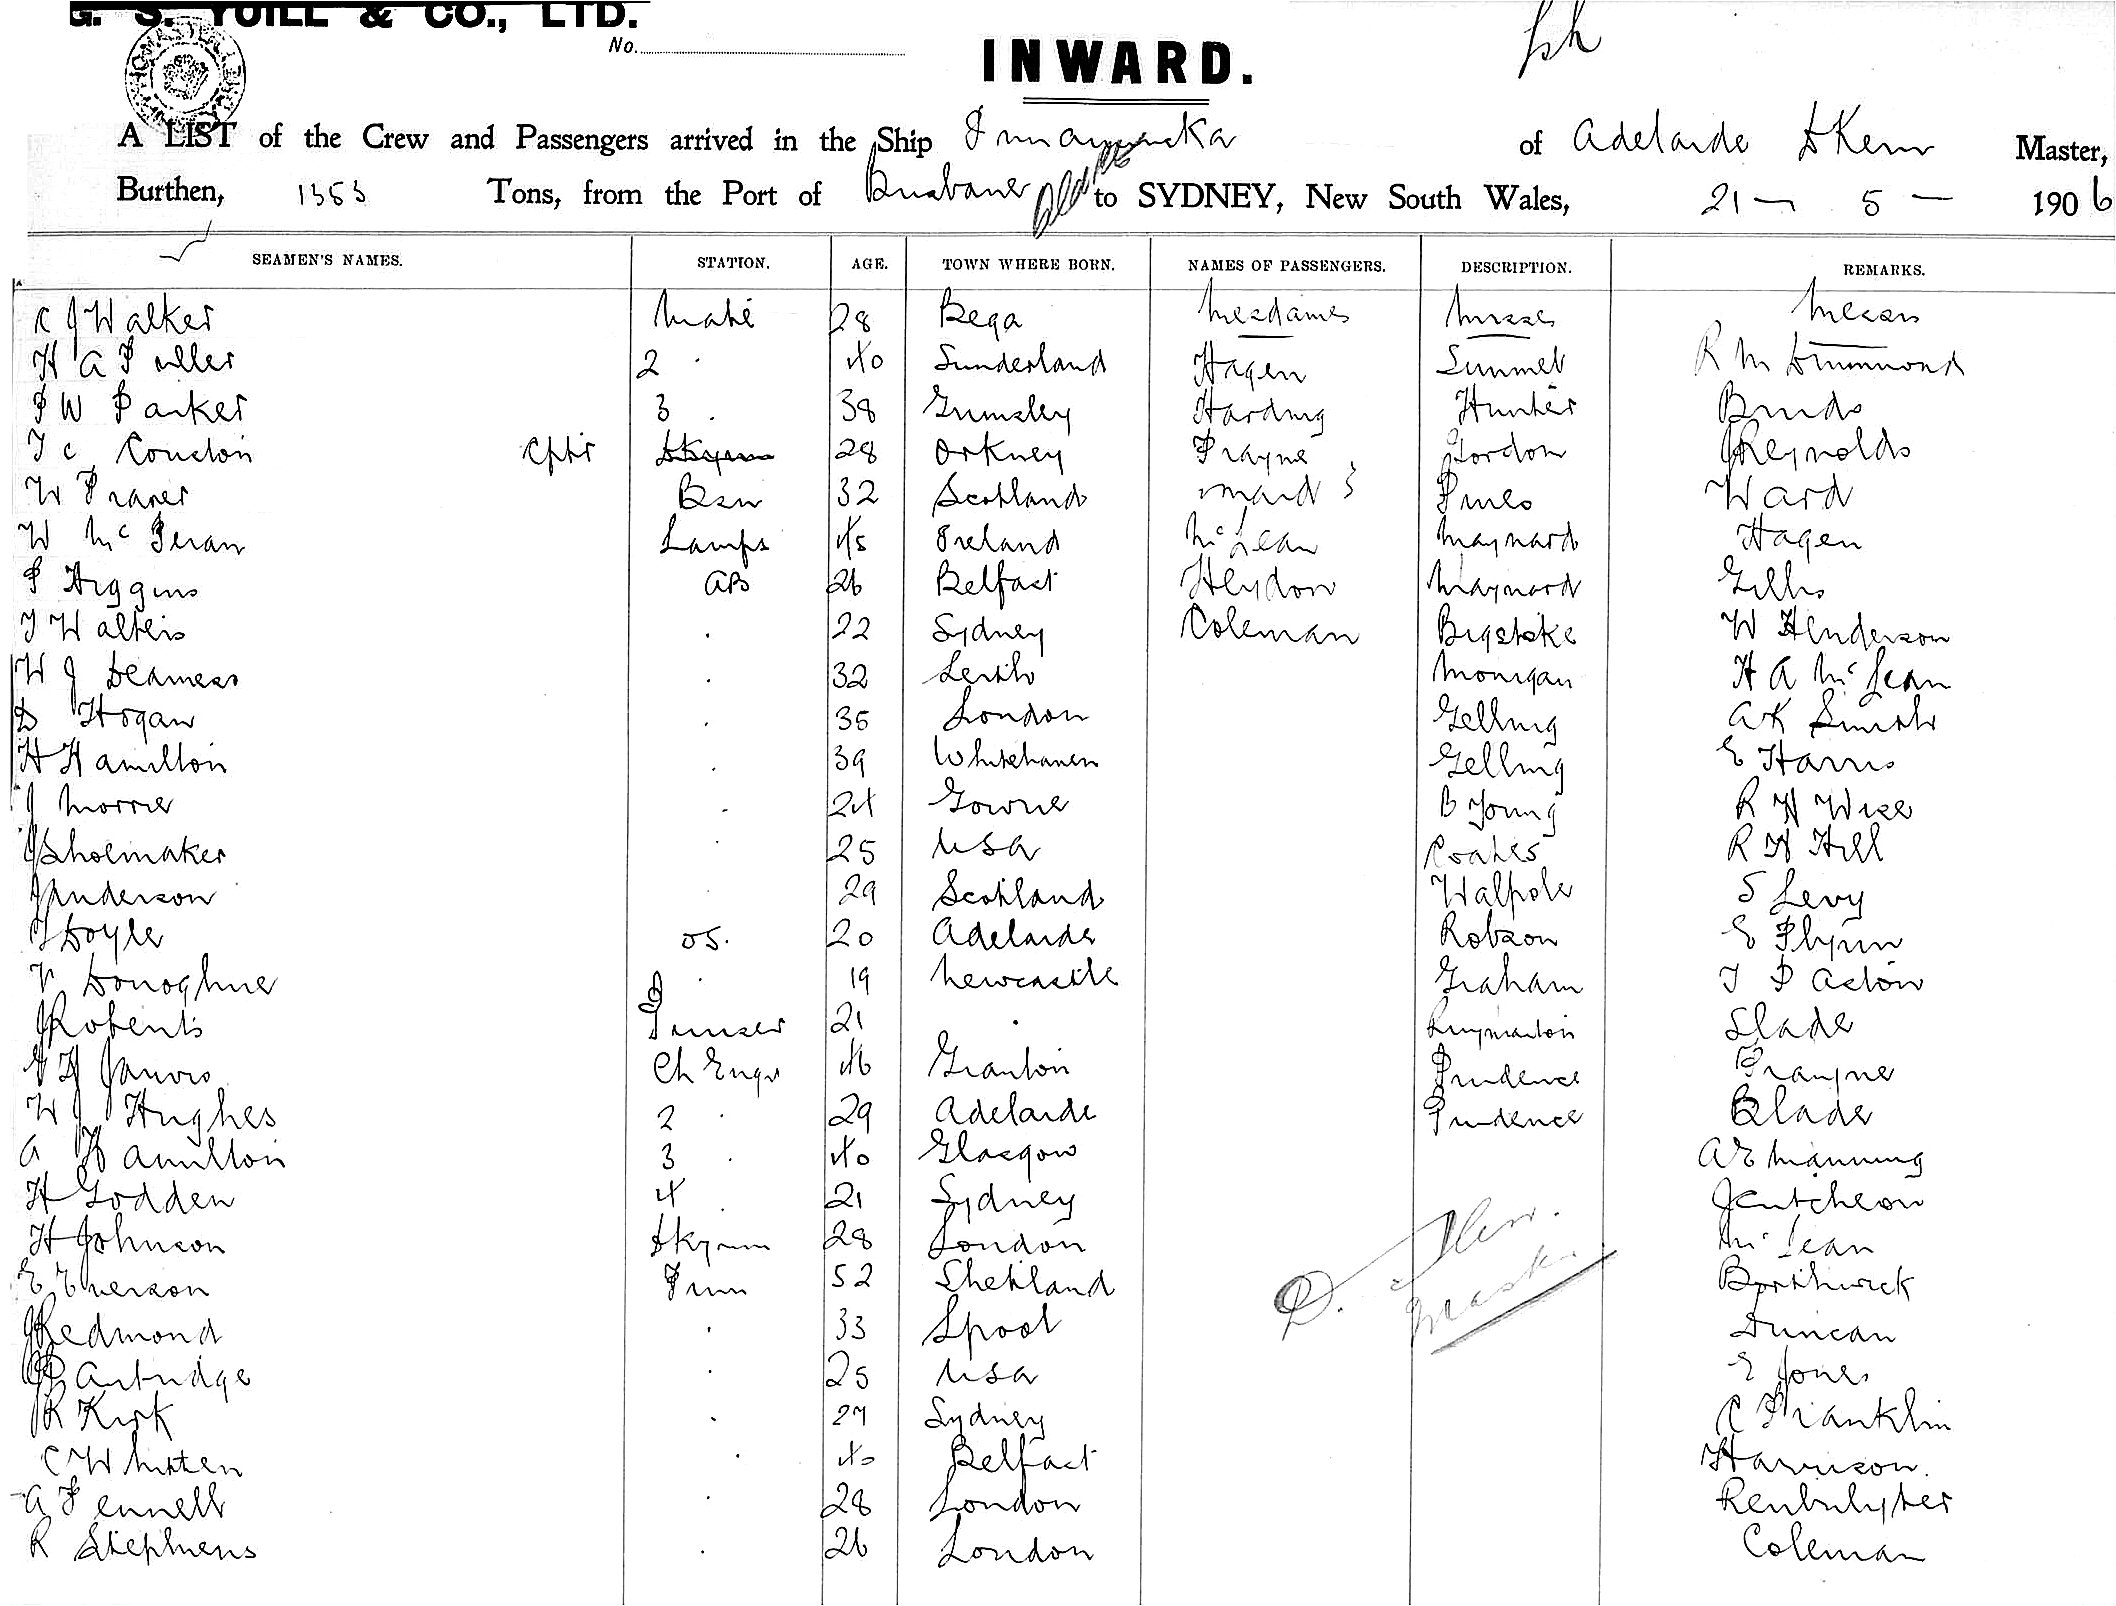 G. S. YUILL & CO., LTD.
No.
INWARD.
A LIST of the Crew and Passengers arrived in the Ship Innamincka of Adelaide D Kerr Master,
Burthen, 1353 Tons, from the Port of Brisbane to SYDNEY, New South Wales, 21 - 5 - 1906
SEAMEN'S NAMES. STATION. AGE. TOWN WHERE BORN. NAMES OF PASSENGERS. DESCRIPTION. REMARKS.
C J Walker Mate 28 Bega Mesdames Misses Messrs
H A Fuller 2 . 40 Sunderland Hagen R M Drummond
F W Parker 3 . 38 Grimsley Harding Hunter Binds
T C Couston Cptr 28 Orkney Frayne Gordon J Reynolds
W Fraser Bsn 32 Scotland maid Pines Ward
W McFeran Lamps 45 Ireland McLean Maynard Hagen
P Higgins AB 26 Belfast Heydon Maynard Gillis
T Walters . 22 Sydney Coleman Bigstoke W Henderson
W J Deamess . 32 Leith Monigan H A McLean
D Hogan . 35 London Gelling A K Smith
H Hamilton . 39 Whitehaven Gelling E Harris
J Morrie . 24 Gowrie B Young R H Wise
J Shoemaker . 25 USA Coates R H Hill
J Anderson . 29 Scotland Walpole S Levy
T Doyle OS. 20 Adelaide Robson E Flynn
V Donoghue . 19 Newcastle Graham T P Aston
J Roberts Trimser 21 . Slade
G H Jarvis Ch Engr 46 Granton Prudence Frayne
W J Hughes 2 . 29 Adelaide Prudence Blade
A Hamilton 3 . 40 Glasgow A E Manning
H Godden 4 . 21 Sydney J Cutcheon
H Johnson Dkymn 28 London McLean
E Everson Firm 52 Shetland Borthwick
J Redmond . 33 Lpool Duncan
P Partridge . 25 USA E Jones
R Kirk . 27 Sydney C Franklin
C Whitten . 40 Belfast Harrison.
A Fennell . 28 London
R Stephens . 26 London Coleman